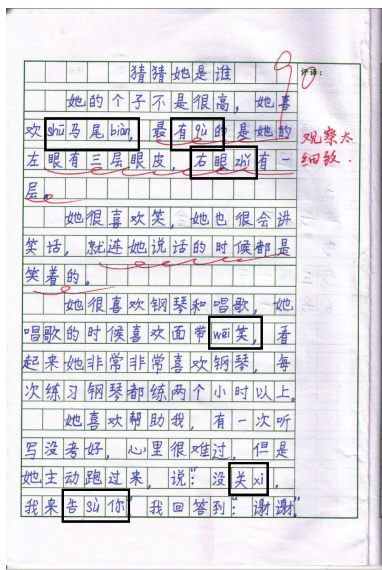 猜猜她是谁
她的个子不是很高，她喜
欢shū马尾biàn，最有qù的是她的
左眼有三层眼皮，右眼zhǐ有一
层。
她很喜欢笑，她也很会讲
笑话，就连她说话的时候都是
笑着的。
她很喜欢钢琴和唱歌，她
唱歌的时候喜欢面带wēi笑，看
起来她非常非常喜欢钢琴，每
次练习钢琴都练两个小时以上。
她喜欢帮助我，有一次听
写没考好，心里很难过，但是
她主动跑过来，说："没关xi，
我来告sù你"我回答到："谢谢"
90
评语：
观察太
细致.